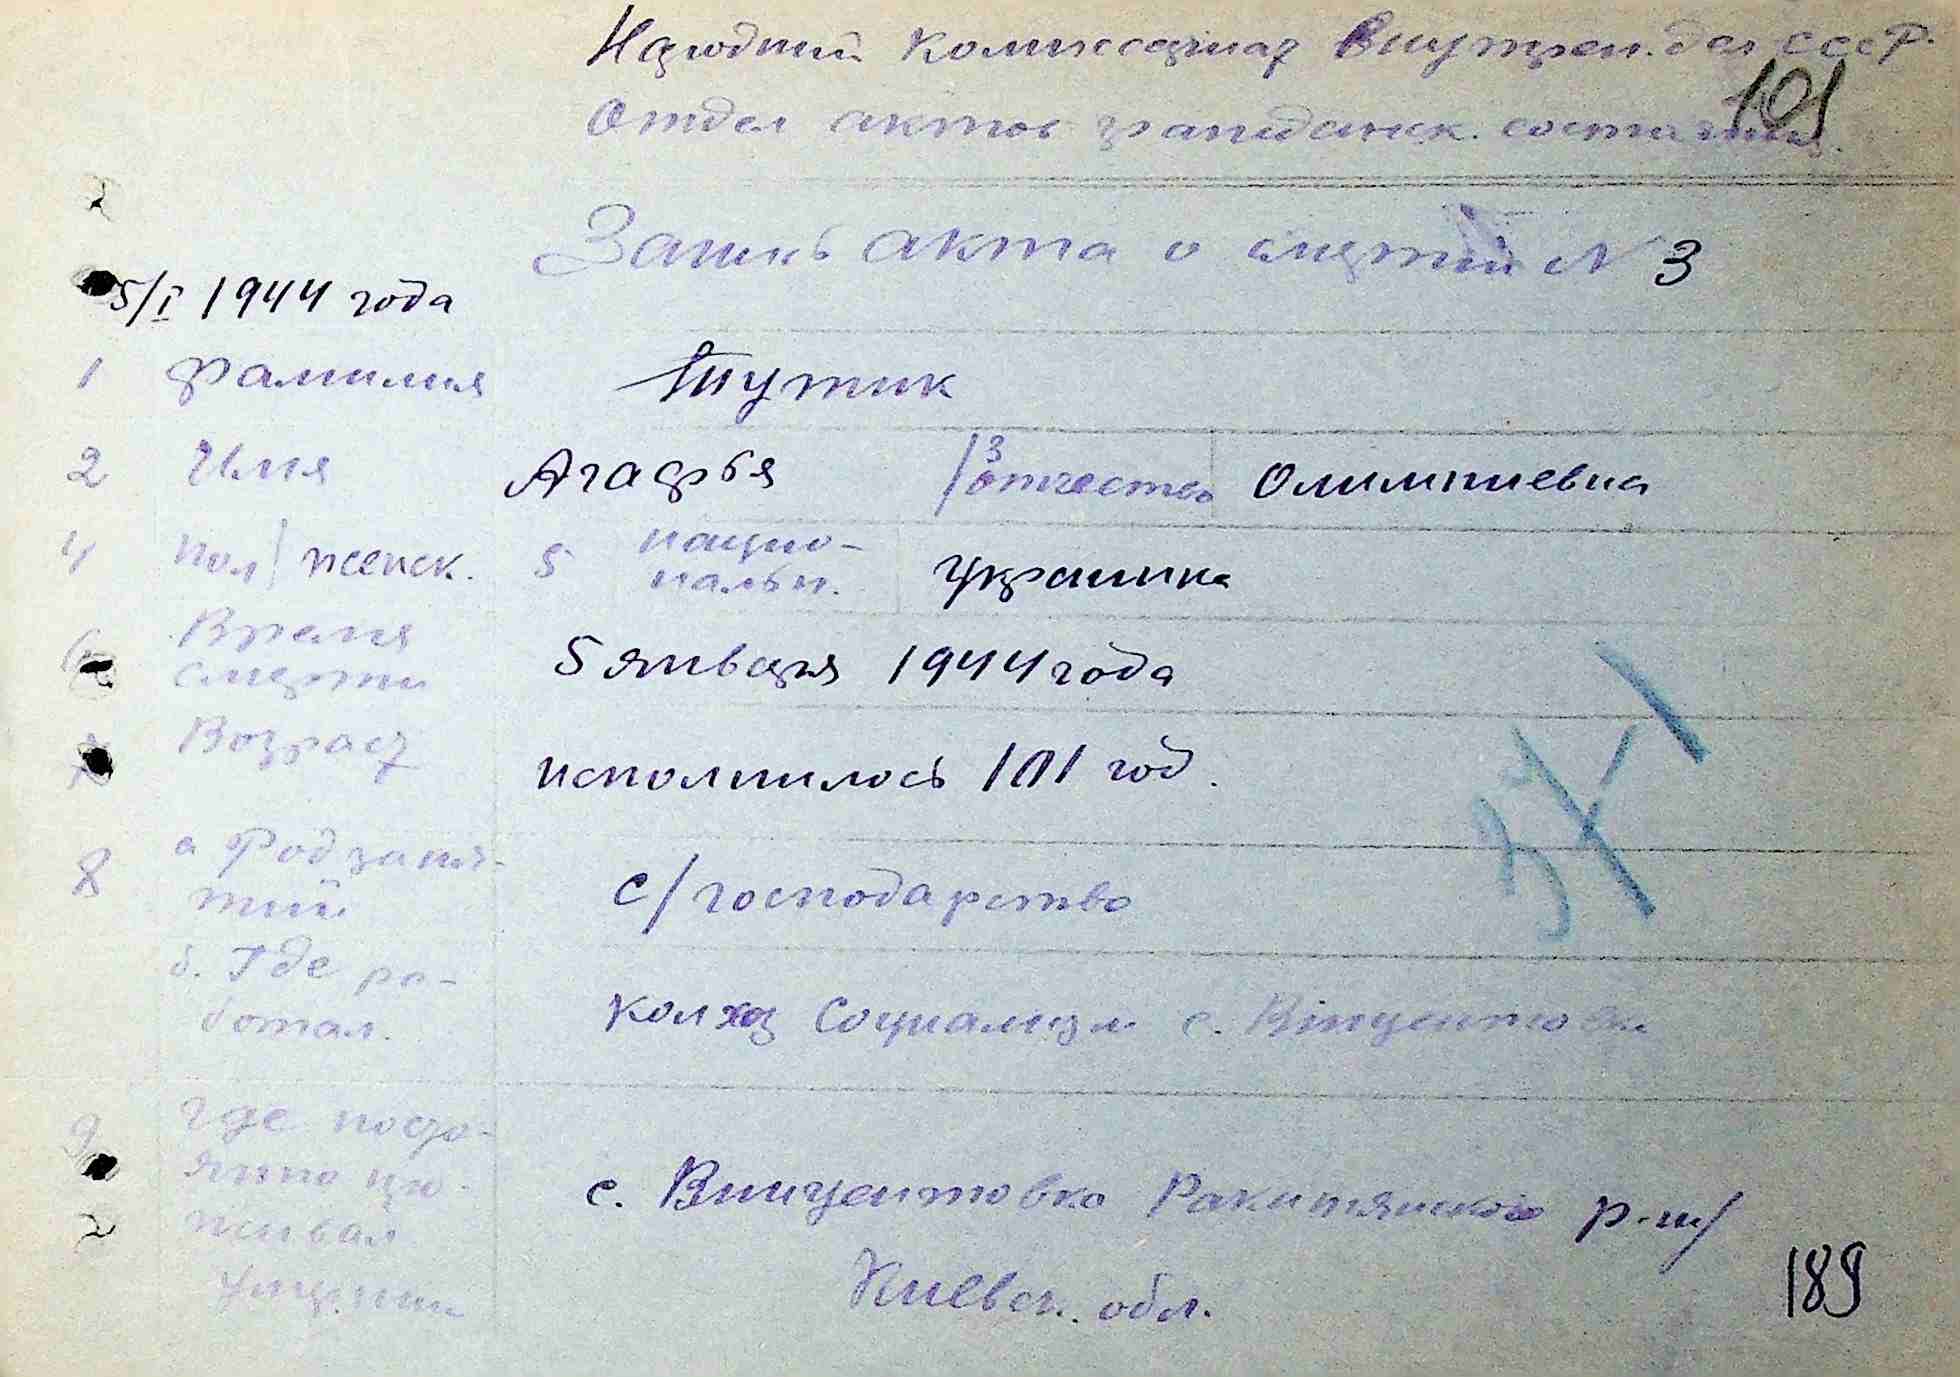 Народний комиссариат внутрен. дел СССР.
101
Отдел актов гражданск. состояния.
Запись акта о смерти N 3
5/I 1944 года
1 Фамилия Шутик
2 Имя Агафья 3 отчество Олимпиевна
4 Пол женск. 5 нацио-
нальн. украинка
6 Время
смерти 5 января 1944 года
7 Возраст исполнилось 101 год.
8 а Род заня-
тий с/господарство
б. Где ра-
ботал. колхоз Социализм с. Вінцентовка
9 Где посто-
янно про-
живал
умерший
с. Винцентовка Ракитянского р-н/
Киевск. обл.
189